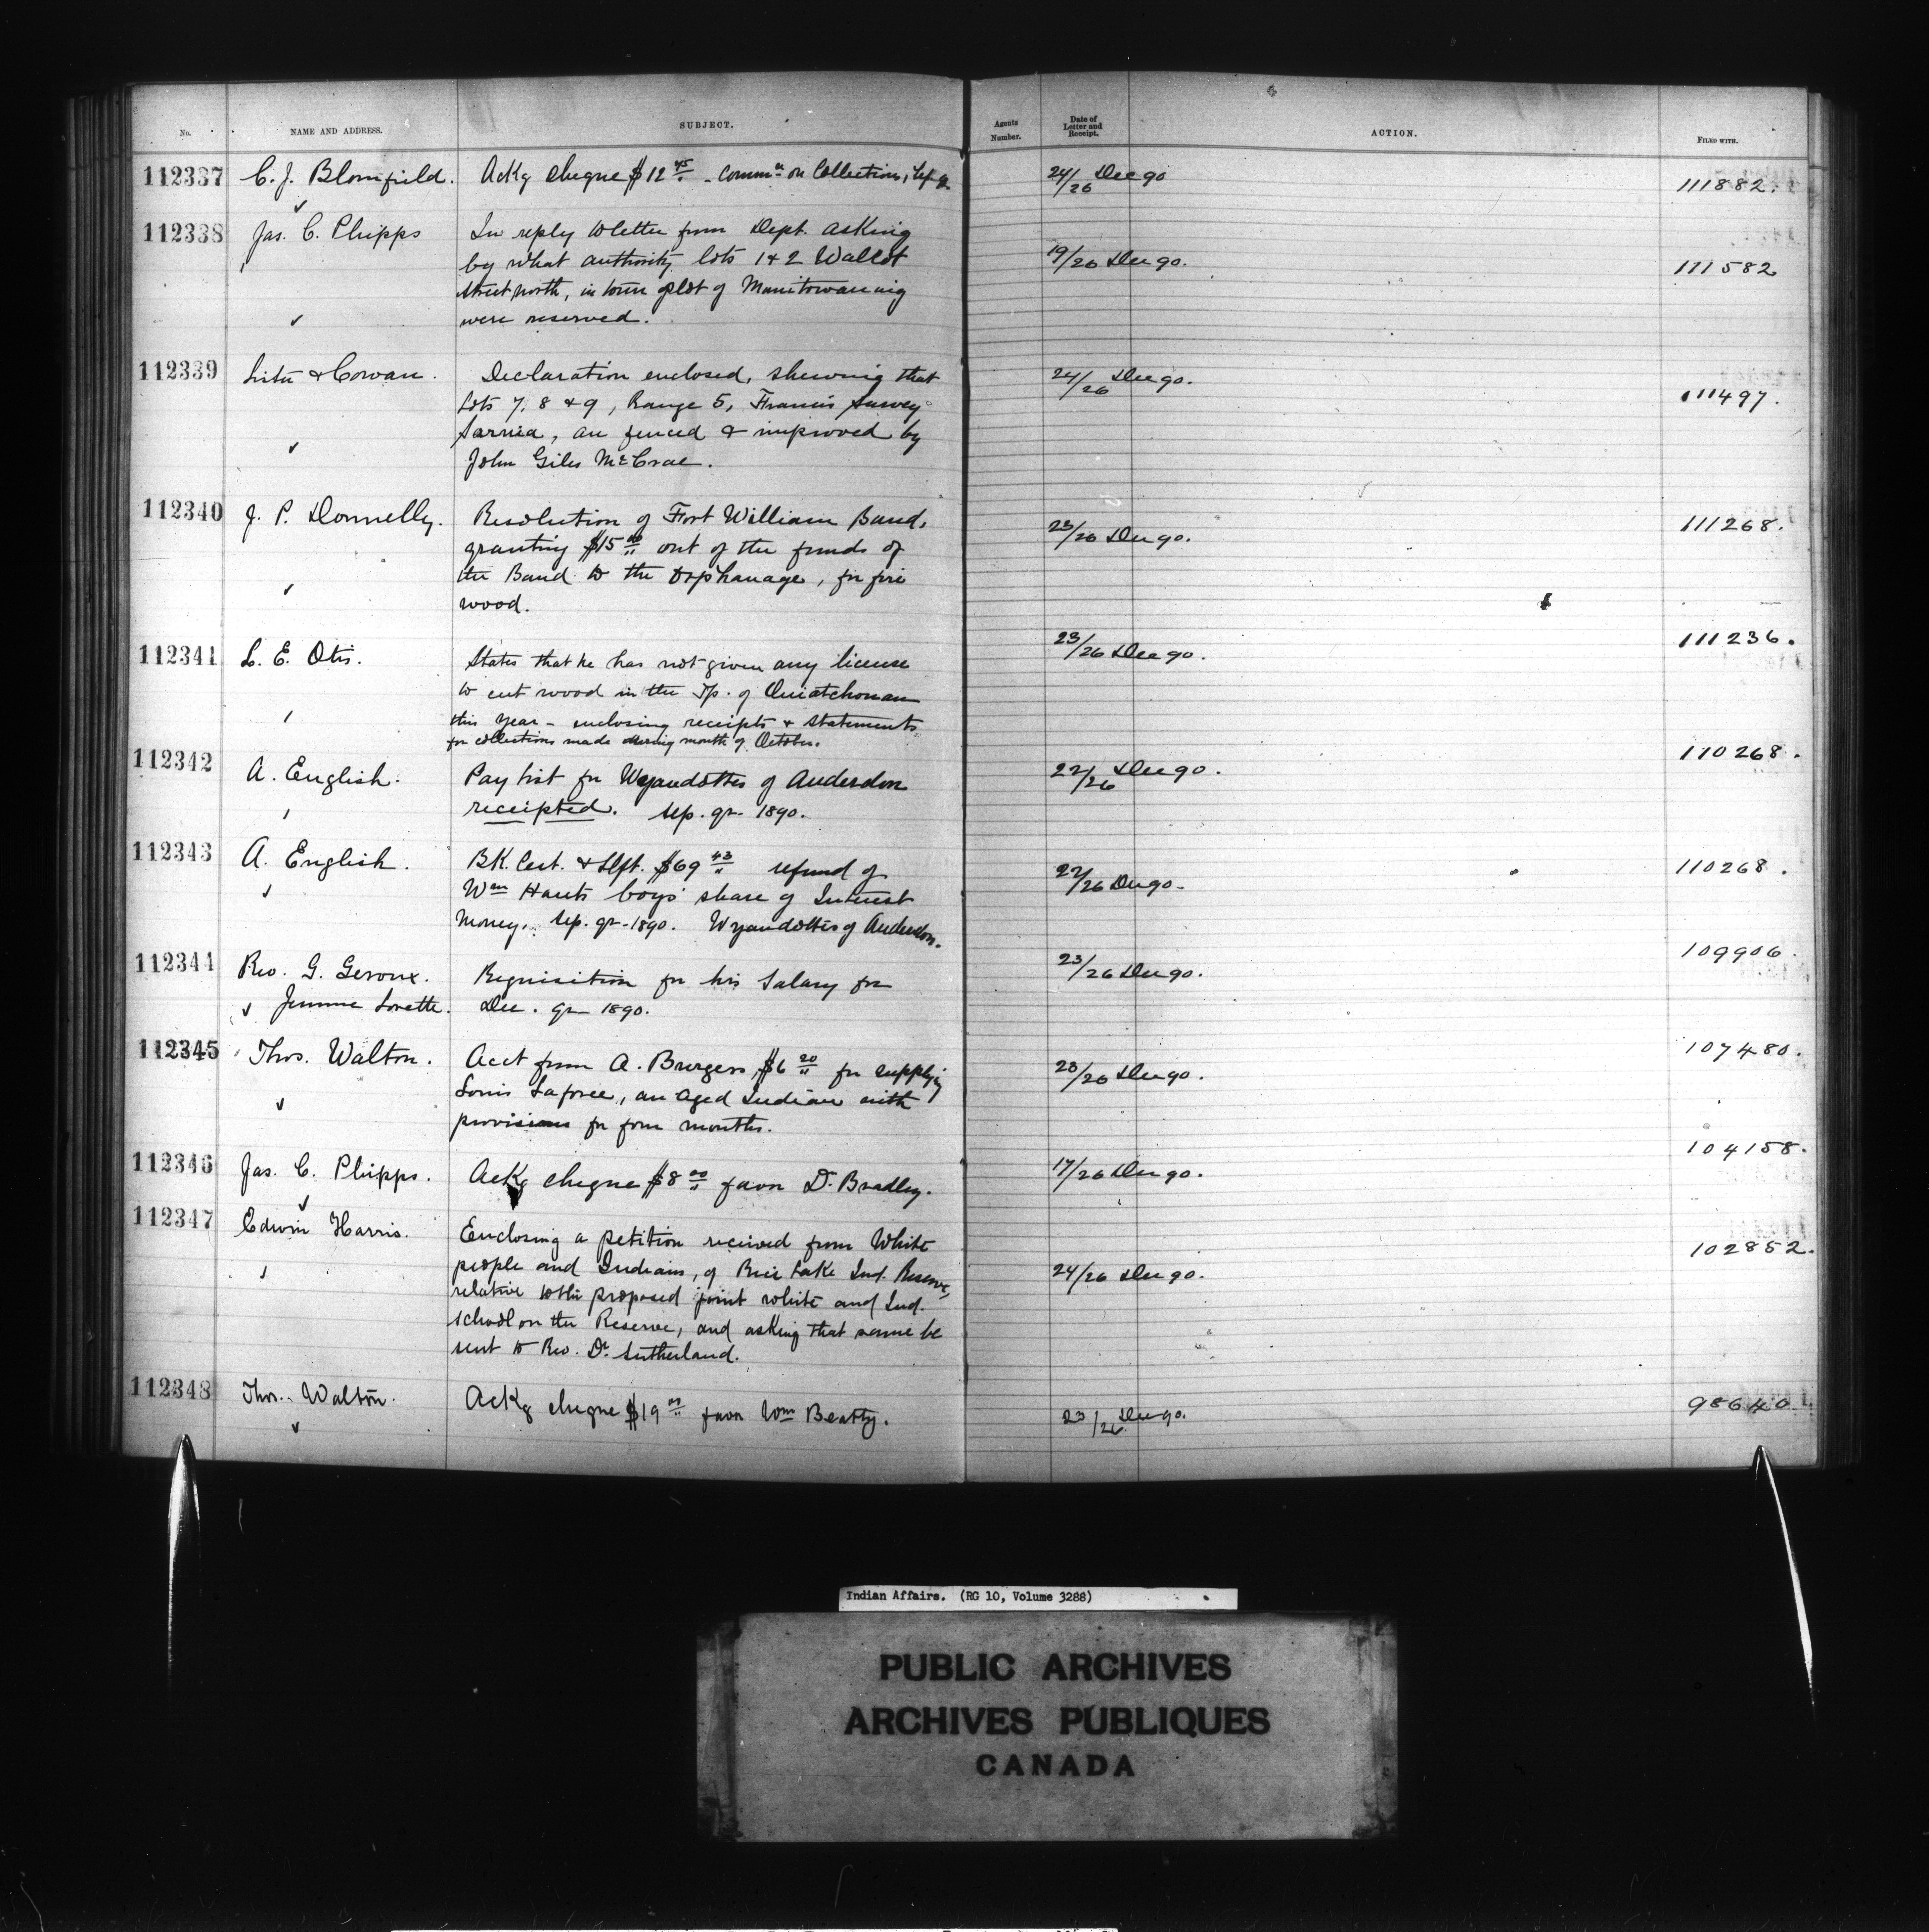 No. NAME AND ADDRESS. SUBJECT. Agents Number. Date of Letter and Receipt. ACTION. FILED WITH.
112337 C. J. Blomfield. Ackg cheque $12 45 - Commn on Collections, Sep. qr 24/26 Dec 90 111882.
112338 Jas. C. Phipps In reply to letter from Dept. asking 19/26 Dec 90. 111582
by what authority lots 1 & 2 Wallot
Street North, in town plot of Manitowaning
were reserved.
112339 Lister & Cowan. Declaration enclosed, shewing that 24/26 Dec 90. 111497.
Lots 7, 8 & 9, Range 5, Francis Survey
Sarnia, are fenced & improved by
John Giles McCrae.
112340 J. P. Donnelly. Resolution of Fort William Band, 23/26 Dec 90. 111268.
granting $15 00 out of the funds of
the Band to the Orphanage, for fire
wood.
112341 L. E. Otis. States that he has not given any license 23/26 Dec 90. 111236.
to cut wood in the Tp. of Ouiatchouan
this year - enclosing receipts & statements
for collections made during month of October.
112342 A. English. Pay list for Wyandottes of Anderdon 22/26 Dec 90. 110268.
receipted. Sep. qr 1890.
112343 A. English. Bk. Cert. & Dft. $69 43 refund of 22/26 Dec 90. 110268.
Wm Hunts boys' share of Interest
Money. Sep. qr 1890. Wyandottes of Anderdon.
112344 Rev. G. Geroux. Requisition for his Salary for 23/26 Dec 90. 109906.
Jeunne Lorette. Dec. qr 1890.
112345 Thos. Walton. Acct from A. Burgess, $6 20 for supplying 23/26 Dec 90. 107480.
Louis Laforce, an aged Indian with
provisions for four months.
112346 Jas. C. Phipps. Ackg cheque $8 00 favor D. Bradley. 17/26 Dec 90. 104158.
112347 Edwin Harris. Enclosing a petition received from White 24/26 Dec 90. 102852.
people and Indians, of Rice Lake Ind. Reserve,
relative to the proposed joint white and Ind.
school on the Reserve, and asking that same be
sent to Rev. Dr. Sutherland.
112348 Thos. Walton. Ackg cheque $19 00 favor Wm Beatty. 23/26 Dec 90. 98640
Indian Affairs. (RG 10, Volume 3288)
PUBLIC ARCHIVES
ARCHIVES PUBLIQUES
CANADA